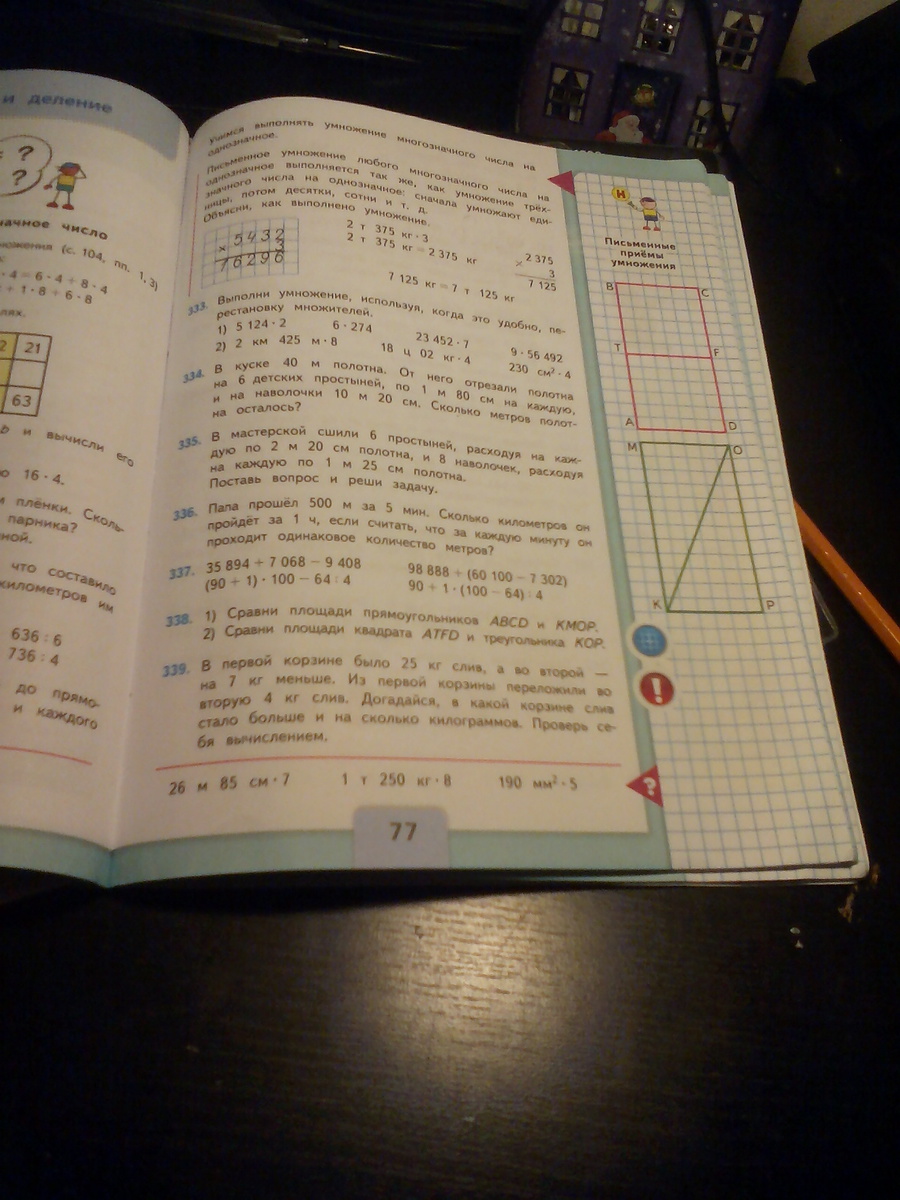 и деление
= ?
?
начное число
ножения (с. 104, пп. 1, 3)
· 4 = 6 · 4 + 8 · 4
+ 1 · 8 + 6 · 8
лях.
2 21
63
b и вычисли его
ю 16 · 4.
м плёнки. Сколь-
парника?
ной.
что составило
километров им
636 : 6
736 : 4
до прямо-
и каждого
Учимся выполнять умножение многозначного числа на
однозначное.
Письменное умножение любого многозначного числа на
однозначное выполняется так же, как умножение трёх-
значного числа на однозначное: сначала умножают еди-
ницы, потом десятки, сотни и т. д.
Объясни, как выполнено умножение.
× 5432
3
76296
2 т 375 кг · 3
2 т 375 кг = 2 375 кг
7 125 кг = 7 т 125 кг
× 2 375
3
7 125
333. Выполни умножение, используя, когда это удобно, пе-
рестановку множителей.
1) 5 124 · 2 6 · 274 23 452 · 7 9 · 56 492
2) 2 км 425 м · 8 18 ц 02 кг · 4 230 см² · 4
334. В куске 40 м полотна. От него отрезали полотна
на 6 детских простыней, по 1 м 80 см на каждую,
и на наволочки 10 м 20 см. Сколько метров полот-
на осталось?
335. В мастерской сшили 6 простыней, расходуя на каж-
дую по 2 м 20 см полотна, и 8 наволочек, расходуя
на каждую по 1 м 25 см полотна.
Поставь вопрос и реши задачу.
336. Папа прошёл 500 м за 5 мин. Сколько километров он
пройдёт за 1 ч, если считать, что за каждую минуту он
проходит одинаковое количество метров?
337. 35 894 + 7 068 − 9 408 98 888 + (60 100 − 7 302)
(90 + 1) · 100 − 64 : 4 90 + 1 · (100 − 64) : 4
338. 1) Сравни площади прямоугольников ABCD и KMOP.
2) Сравни площади квадрата ATFD и треугольника KOP.
339. В первой корзине было 25 кг слив, а во второй —
на 7 кг меньше. Из первой корзины переложили во
вторую 4 кг слив. Догадайся, в какой корзине слив
стало больше и на сколько килограммов. Проверь се-
бя вычислением.
26 м 85 см · 7 1 т 250 кг · 8 190 мм² · 5
?
77
Н
Письменные
приёмы
умножения
B C
T F
A D
M O
K P
!